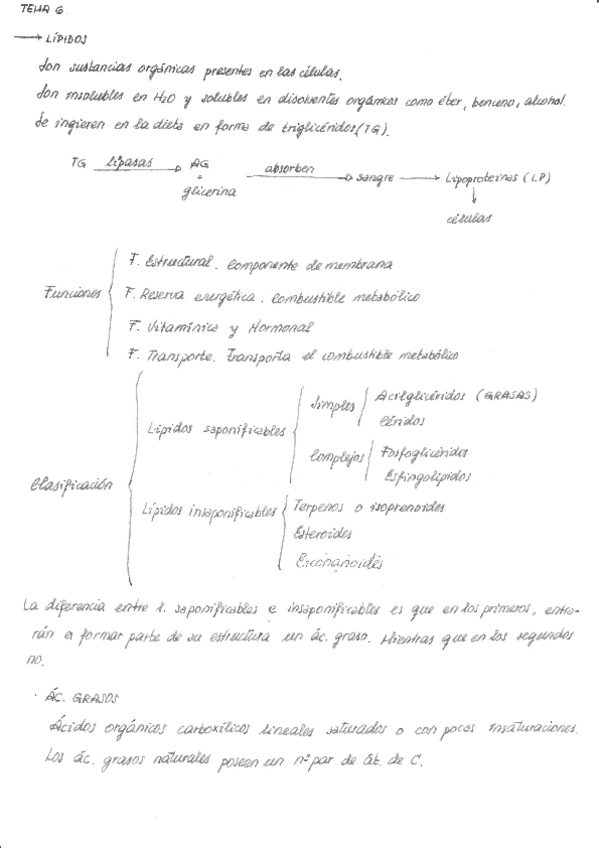 TEMA 6
→ LÍPIDOS
Son sustancias orgánicas presentes en las células.
Son insolubles en H2O y solubles en disolventes orgánicos como éter, benceno, alcohol.
Se ingieren en la dieta en forma de triglicéridos (TG).
TG lipasas → AG + glicerina absorben → sangre → Lipoproteinas (LP)
↓
células
Funciones
F. Estructural. Componente de membrana
F. Reserva energética. Combustible metabólico
F. Vitamínica y Hormonal
F. Transporte. Transporta el combustible metabólico
Clasificación
Lípidos saponificables
Simples
Acilglicéridos (GRASAS)
Céridos
Complejos
Fosfoglicéridos
Esfingolípidos
Lípidos insaponificables
Terpenos o isoprenoides
Esteroides
Eicosanoides
La diferencia entre l. saponificables e insaponificables es que en los primeros, entra-
rán a formar parte de su estructura un ác. graso. Mientras que en los segundos
no.
· ÁC. GRASOS
Ácidos orgánicos carboxílicos lineales saturados o con pocas insaturaciones.
Los ác. grasos naturales poseen un nº par de át. de C.